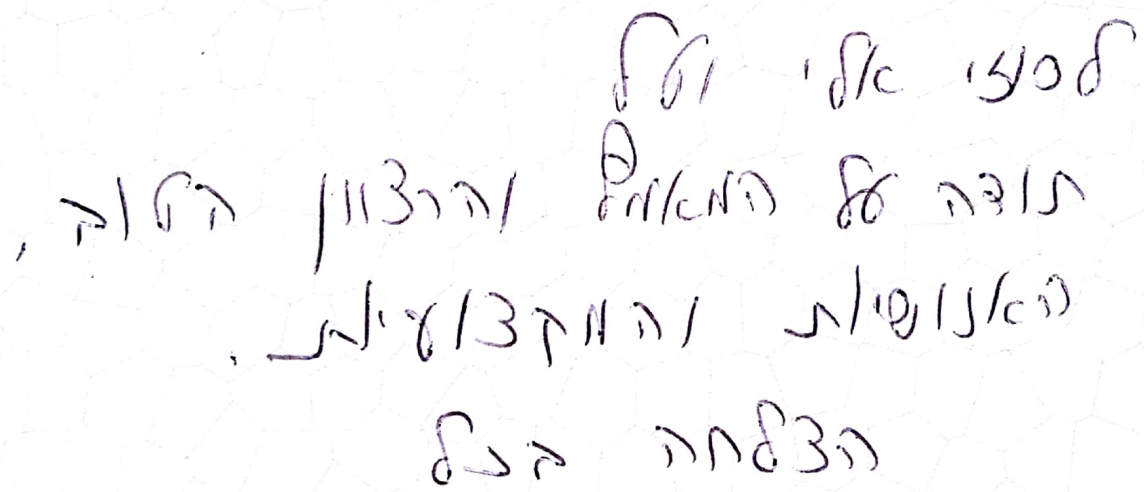 לסוזי אלי וטל
תודה על המאמץ והרצון הטוב,
האנושיות והמקצועיות.
הצלחה בכל